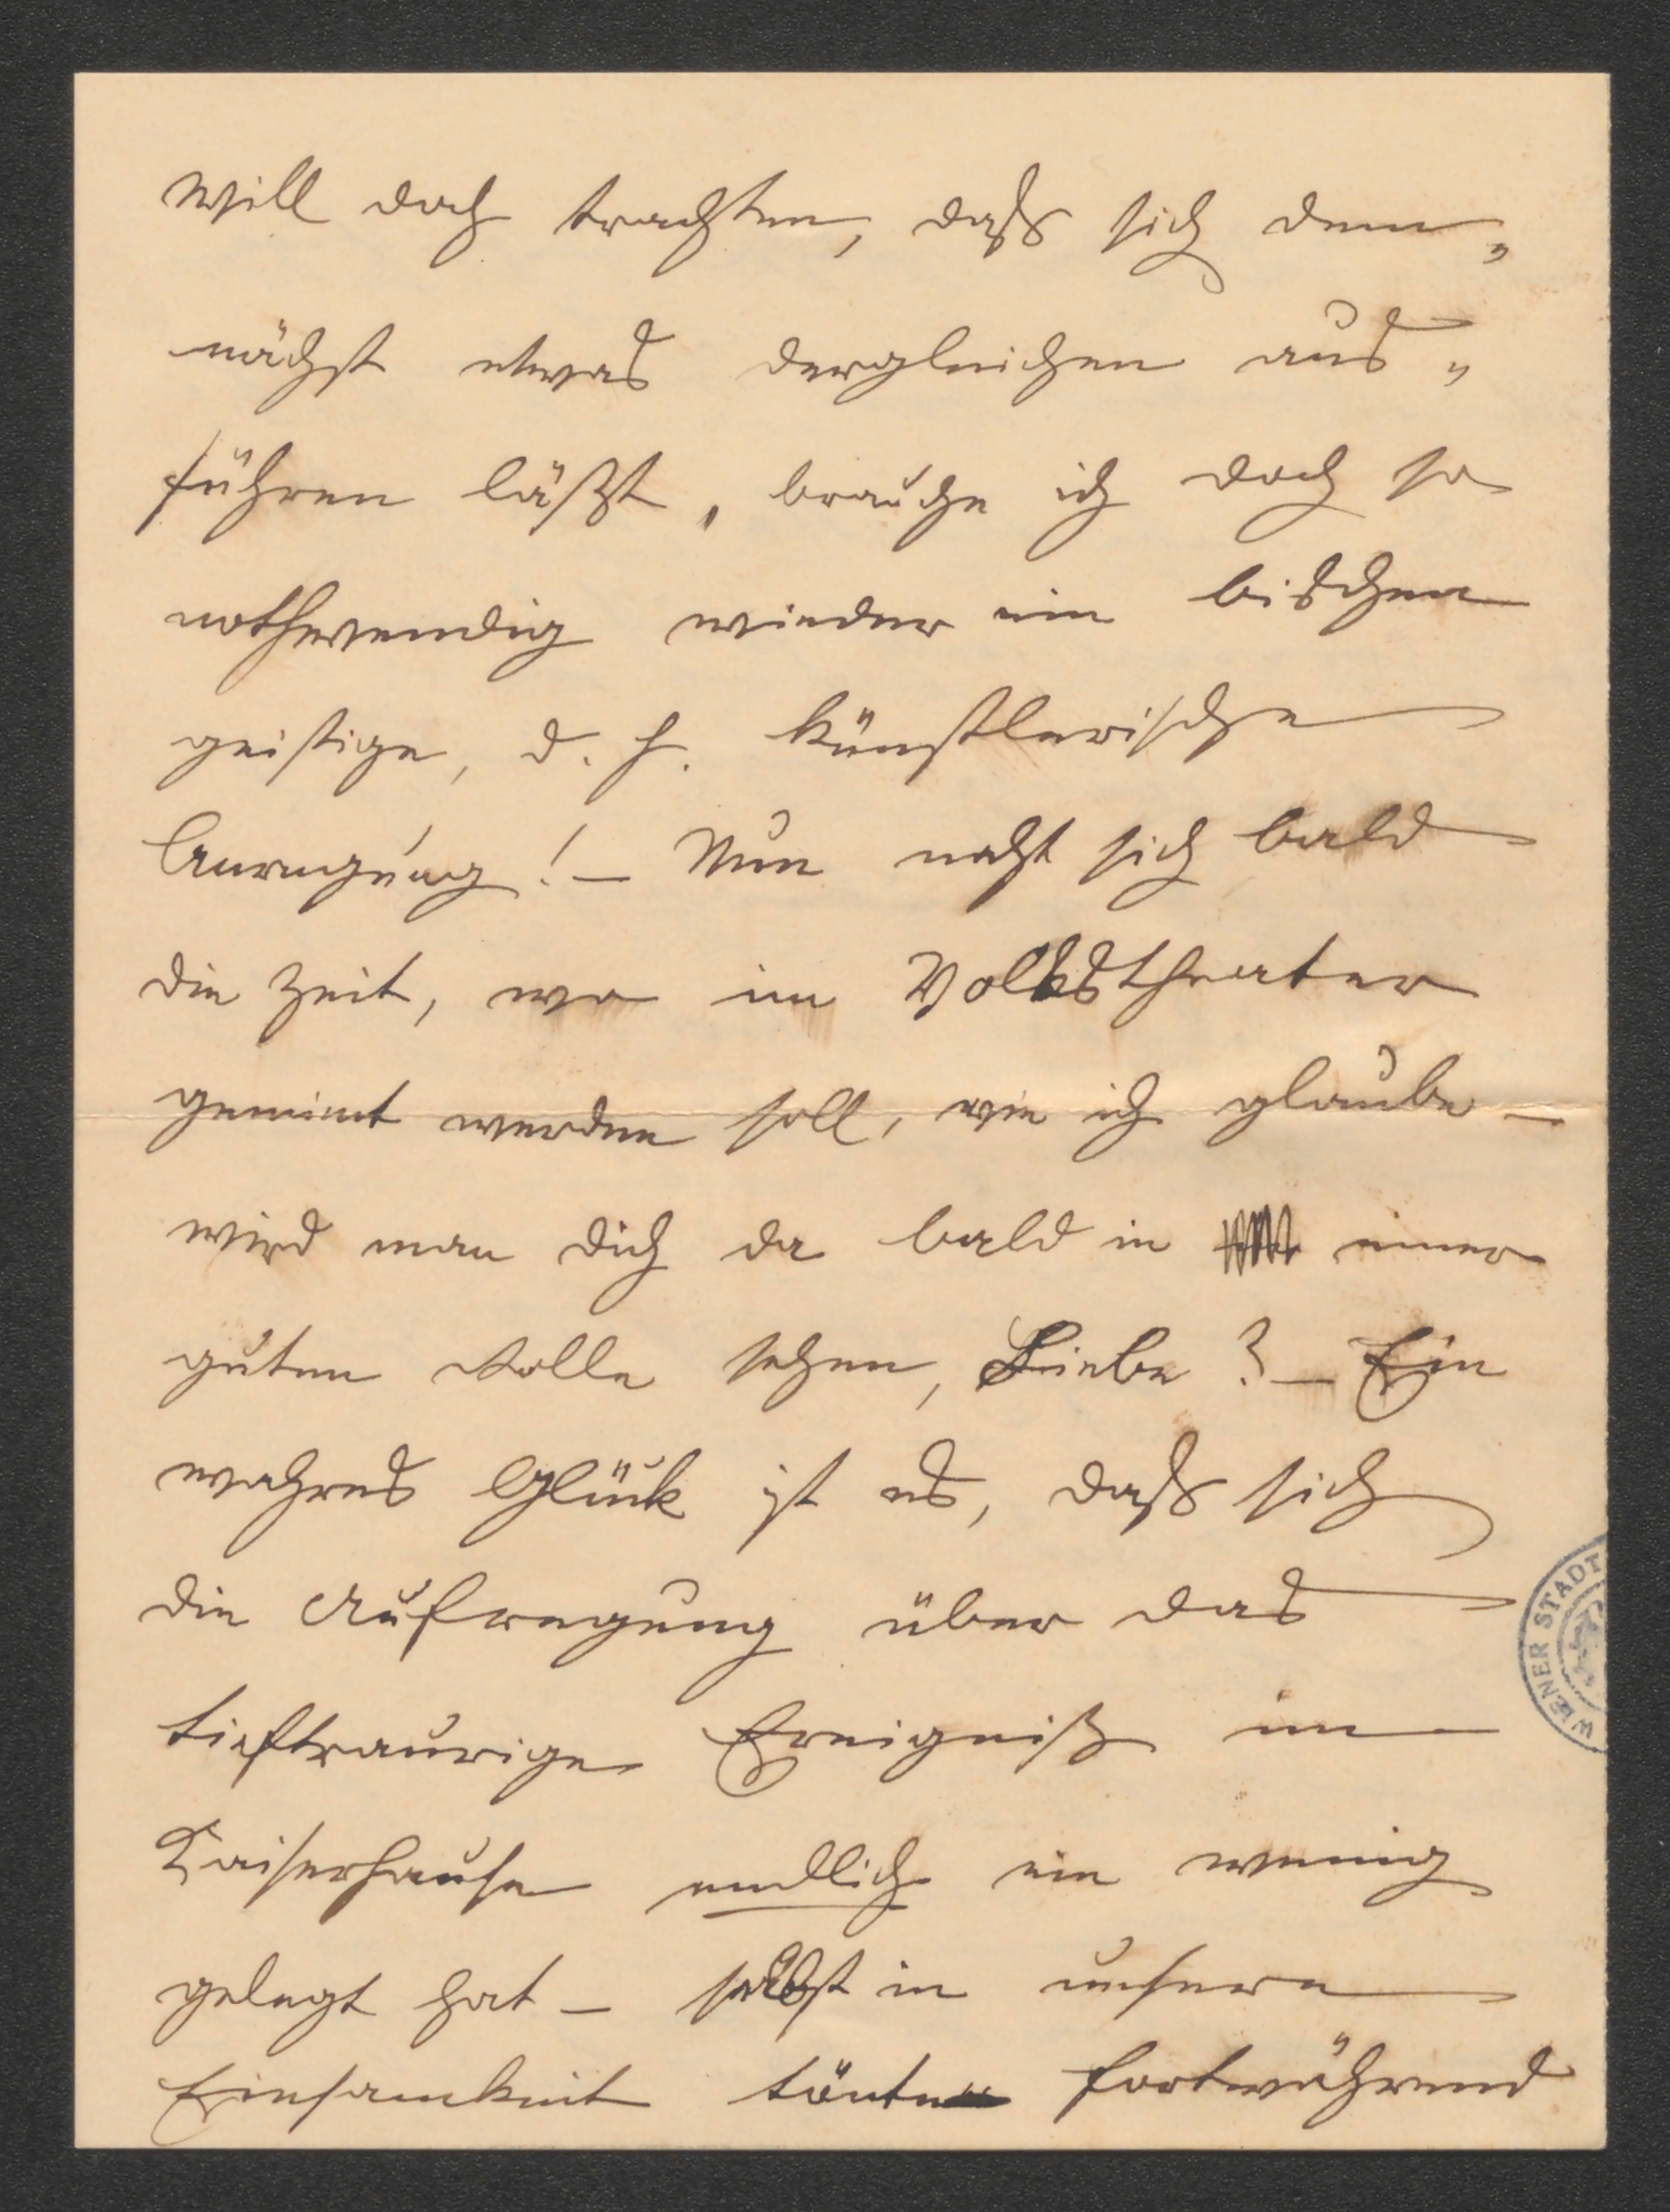 will doch trachten, daſs sich dem„
nächst etwas dergleichen aus„
führen läßt, brauche ich doch so
nothwendig wieder ein bischen
geistige, d. h. künstlerische
Anregung! – Nun naht sich bald
die Zeit, wo im Volkstheater
gemimt werden soll, wie ich glaube –
wird man dich da bald in einer
guten Rolle sehen, Liebe? – Ein
wahres Glück ist es, daſs sich
die Aufregung über das
tieftraurige Ereigniß im
Kaiserhause endlich ein wenig
gelegt hat – selbst in unsere
Einsamkeit tönte fortwährend
WIENER STADT